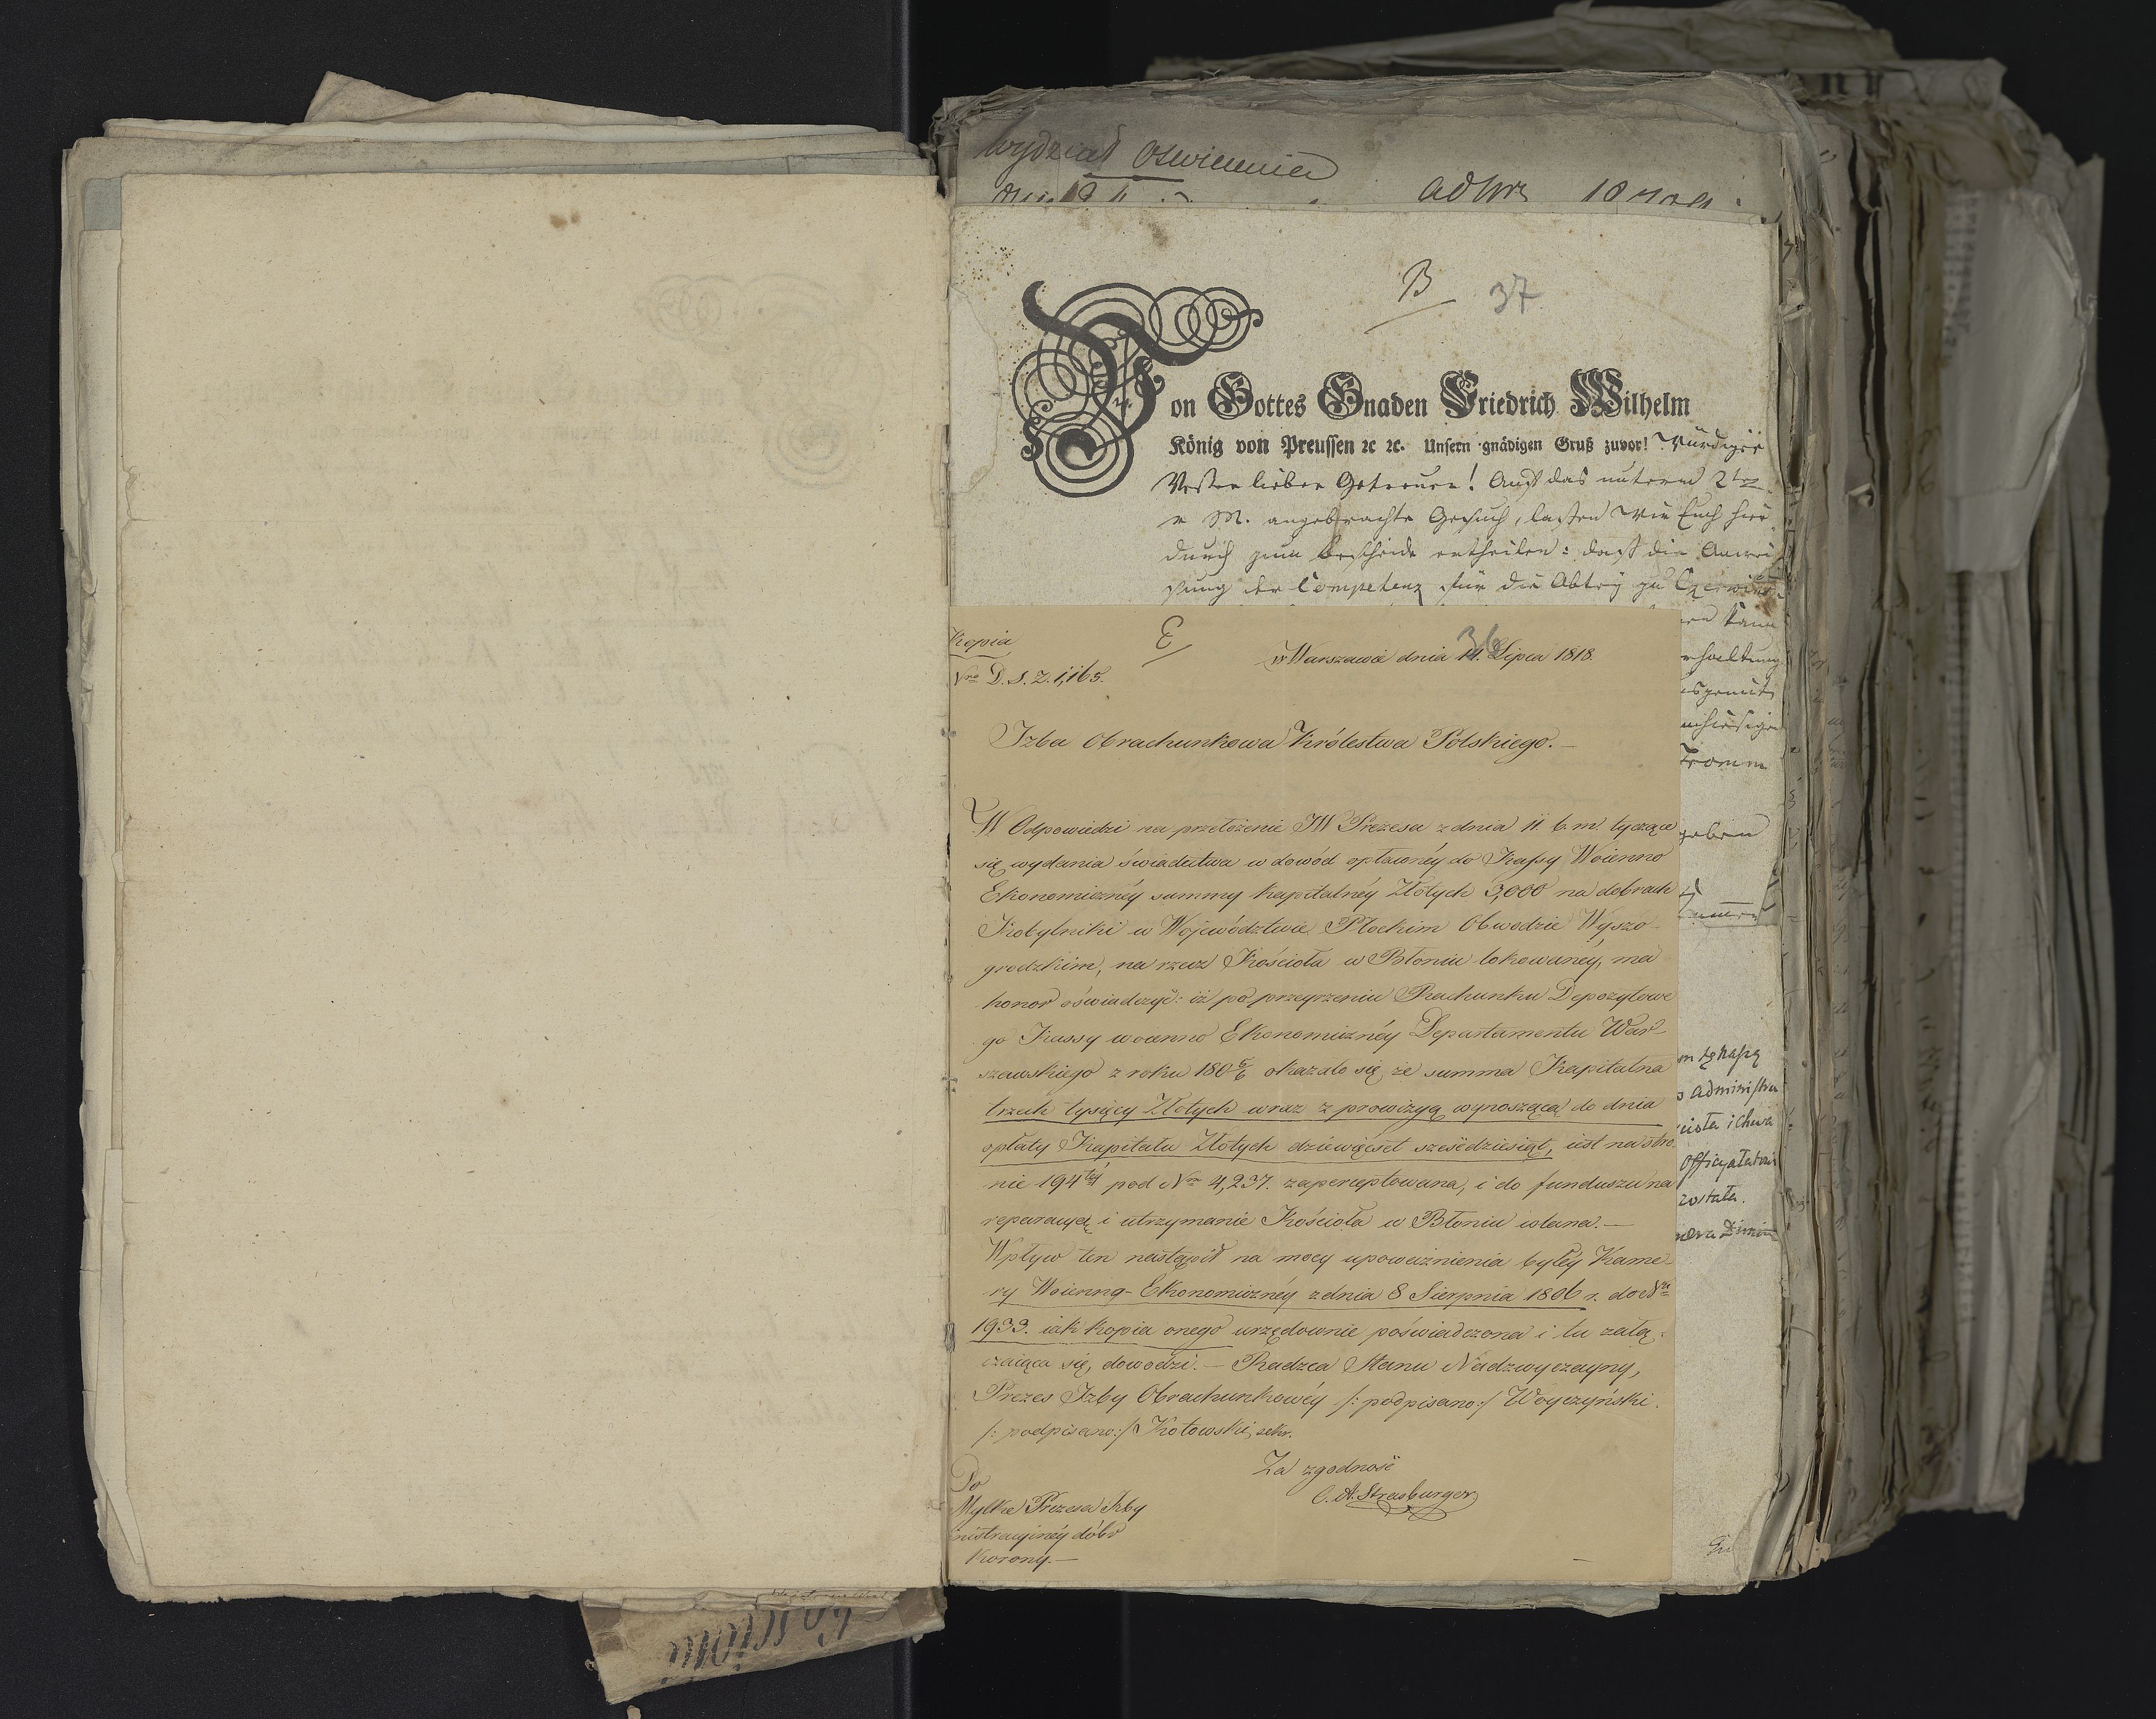 Wydział Oswiecenia
ad Nro
B 37
Von Gottes Gnaden Friedrich Wilhelm
König von Preussen ꝛc ꝛc. Unsern gnädigen Gruß zuvor! Würdiger
Vester lieber Getreuer! Auf das unterm 2ten
v M. angebrachte Gesuch, lassen Wir Euch hier
durch zum Bescheide ertheilen: daß die Anwei
sung der Competenz für die Abtey zu Czerwins
Kopia
E
36
w Warszawie dnia 14. Lipca 1818.
Nro D. S. Z. 1,165.
Izba Obrachunkowa Królestwa Polskiego.—
W Odpowiedzi na przełożenie JW Prezesa z dnia 11. b. m. tyczące
się wydania świadectwa w dowód opłaconéy do Kassy Woienno
Ekonomicznéy summy kapitalnéy Złotych 3,000 na dobrach
Kobylniki w Województwie Płockim Obwodzie Wyszo-
grodzkim, na rzecz Kościoła w Błoniu lokowanéy, ma
honor oświadczyć: iż po przeyrzeniu Rachunku Depozytowe
go Kassy woienno Ekonomicznéy Departamentu War-
szawskiego z roku 180 5/6 okazało się że summa Kapitalna
trzech tysięcy Złotych wraz z prowizyą wynoszącą do dnia
opłaty Kapitału Złotych dziewięćset sześćdziesiąt, iest na stro
nie 194téy pod Nro 4,237. zaperceptowana, i do funduszu na
reparacyą i utrzymanie Kościoła w Błoniu wlana.—
Wpływ ten nastąpił na mocy upoważnienia byłéy Kame-
ry Woienno-Ekonomicznéy z dnia 8 Sierpnia 1806 r. do Nru
1933. iak kopia onego urzędownie poświadczona i tu załą-
czaiąca się, dowodzi.— Radzca Stanu Nadzwyczayny,
Prezes Izby Obrachunkowéy /: podpisano :/ Woyczyński.
/: podpisano :/ Kotowski, sekr.
Za zgodność
C. A. Strasburger
Do
Mylke Prezesa Izby
inistracyinéy dóbr
Korony.—
geben
Tromm
o administra
cioła i chwa
Officyałatowi
została.